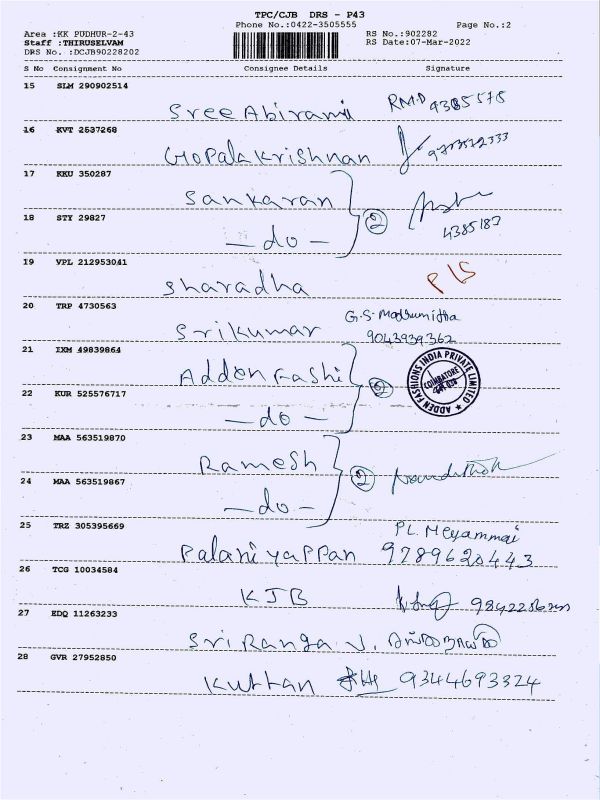 TPC/CJB DRS - P43
Phone No.:0422-3505555
Page No.:2
Area :KK PUDHUR-2-43
Staff :THIRUSELVAM
DRS No. :DCJB90228202
RS No.:902282
RS Date:07-Mar-2022
S No Consignment No Consignee Details Signature
15 SLM 290902514
Sree Abirami RMD 9385578
16 KVT 2537268
Gopala Krishnan
17 KKU 350287
Sankaran
2
18 STY 29827
- do - 4385183
19 VPL 212953041
Sharadha
20 TRP 4730563
Srikumar G.S. Madhumitha
9043939362
21 IXM 49839864
Adden Fashi
2
ADDEN FASHIONS INDIA PRIVATE LIMITED
COIMBATORE
22 KUR 525576717
- do -
23 MAA 563519870
Ramesh
2
24 MAA 563519867
- do -
25 TRZ 305395669
PL. Meyammai
Palaniyappan 9789620443
26 TCG 10034584
KJB
27 EDQ 11263233
Sri Ranga V.
28 GVR 27952850
Kuttan 9344693324